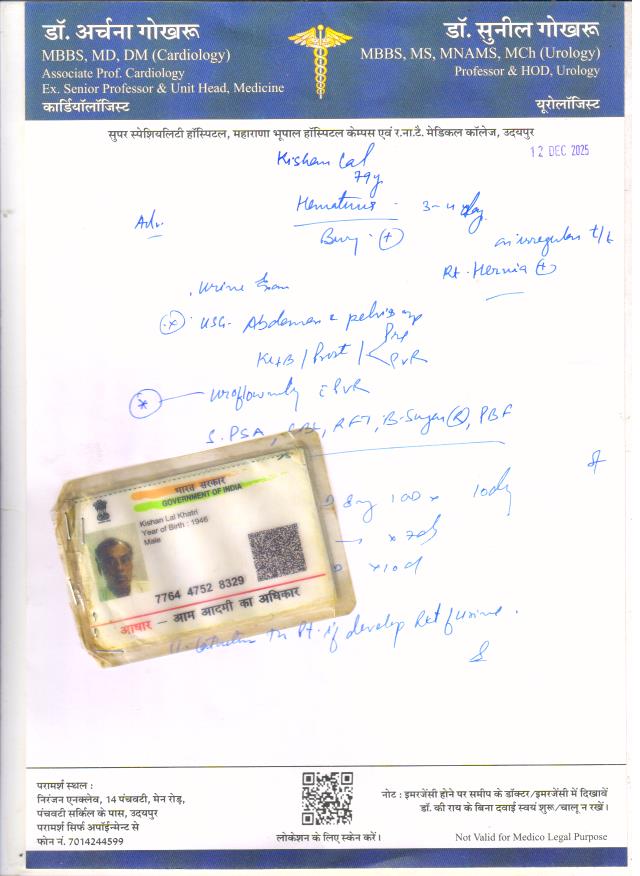 डॉ. अर्चना गोखरू
MBBS, MD, DM (Cardiology)
Associate Prof. Cardiology
Ex. Senior Professor & Unit Head, Medicine
कार्डियॉलॉजिस्ट
डॉ. सुनील गोखरू
MBBS, MS, MNAMS, MCh (Urology)
Professor & HOD, Urology
यूरोलॉजिस्ट
सुपर स्पेशियलिटी हॉस्पिटल, महाराणा भूपाल हॉस्पिटल केम्पस एवं र.ना.टै. मेडिकल कॉलेज, उदयपुर
12 DEC 2025
Kishan Lal
79y
Adv.
3-4 day
(+)
on irregular t/t
Rt. Hernia (+)
Urine
USG- Abdomen
KUB / Prost / Pre
PVR
c PVR
S. PSA, RFT, B-Sugar (R), PBF
x 10 day
x 7d
x 10d
भारत सरकार
GOVERNMENT OF INDIA
Kishan Lal Khatri
Year of Birth : 1946
Male
7764 4752 8329
आधार – आम आदमी का अधिकार
Pt. if develop Ret of urine.
परामर्श स्थल :
निरंजन एनक्लेव, 14 पंचवटी, मेन रोड़,
पंचवटी सर्किल के पास, उदयपुर
परामर्श सिर्फ अपॉईन्मेन्ट से
फोन नं. 7014244599
लोकेशन के लिए स्केन करें।
नोट : इमरजेंसी होने पर समीप के डॉक्टर/इमरजेंसी में दिखावें
डॉ. की राय के बिना दवाई स्वयं शुरू/चालू न रखें।
Not Valid for Medico Legal Purpose